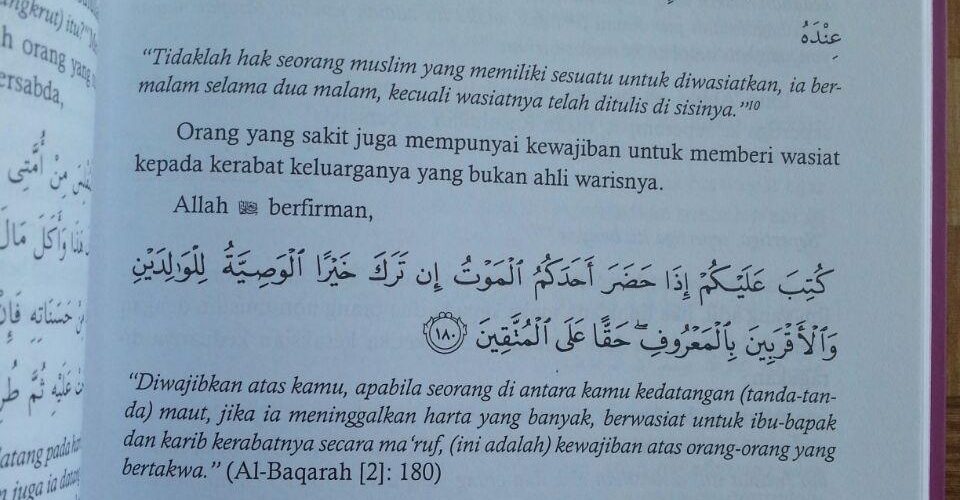 angkrut) itu?"
orang yang
ersabda,
مِنْ أُمَّتِي
هَذَا وَأَكَلَ مَالَ
حَسَنَاتِهِ فَإِنْ
عَلَيْهِ ثُمَّ
datang pada
juga ia datang
عِنْدَهُ
"Tidaklah hak seorang muslim yang memiliki sesuatu untuk diwasiatkan, ia ber-
malam selama dua malam, kecuali wasiatnya telah ditulis di sisinya."10
Orang yang sakit juga mempunyai kewajiban untuk memberi wasiat
kepada kerabat keluarganya yang bukan ahli warisnya.
Allah ﷻ berfirman,
كُتِبَ عَلَيْكُمْ إِذَا حَضَرَ أَحَدَكُمُ الْمَوْتُ إِن تَرَكَ خَيْرًا الْوَصِيَّةُ لِلْوَٰلِدَيْنِ
وَالْأَقْرَبِينَ بِالْمَعْرُوفِ ۖ حَقًّا عَلَى الْمُتَّقِينَ ١٨٠
"Diwajibkan atas kamu, apabila seorang di antara kamu kedatangan (tanda-tan-
da) maut, jika ia meninggalkan harta yang banyak, berwasiat untuk ibu-bapak
dan karib kerabatnya secara ma'ruf, (ini adalah) kewajiban atas orang-orang yang
bertakwa." (Al-Baqarah [2]: 180)